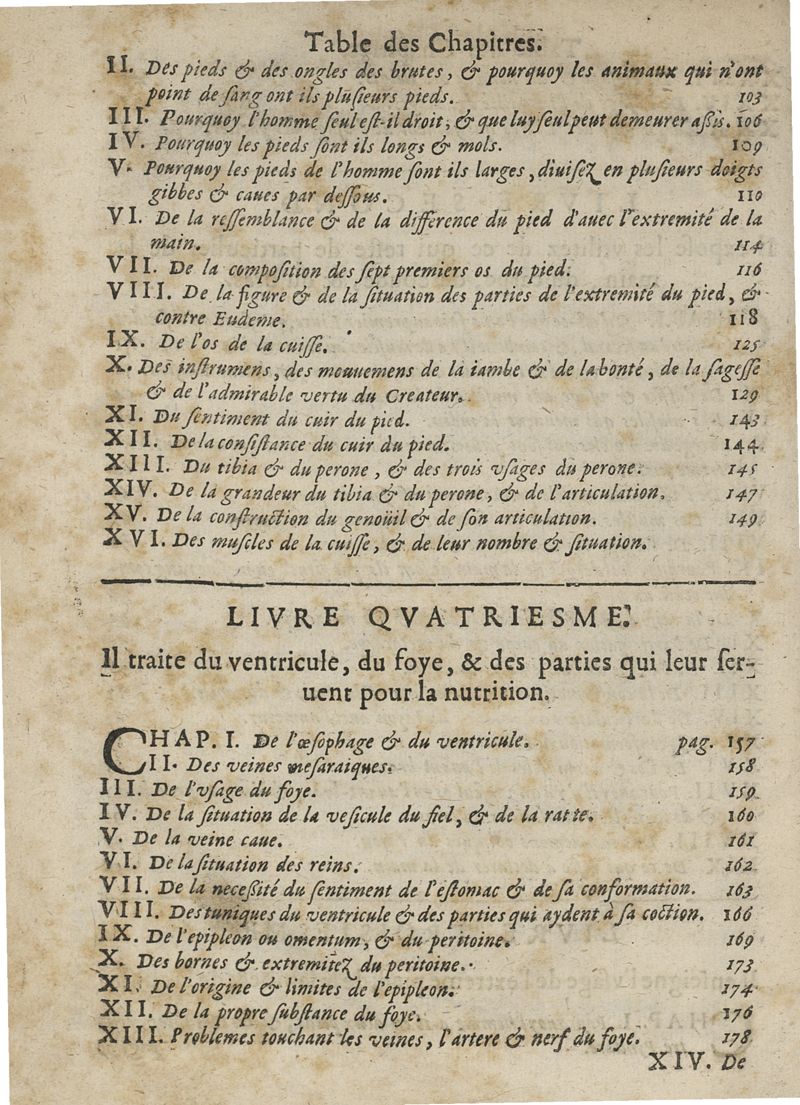 Table des Chapitres.
II. Des pieds & des ongles des brutes, & pourquoy les animaux qui n'ont
point de ſang ont ils pluſieurs pieds. 103
III. Pourquoy l'homme ſeul eſt-il droit, & que luy ſeul peut demeurer aßis. 106
IV. Pourquoy les pieds ſont ils longs & mols. 109
V. Pourquoy les pieds de l'homme ſont ils larges, diuiſez en pluſieurs doigts
gibbes & caues par deſſous. 110
VI. De la reſſemblance & de la difference du pied d'auec l'extremité de la
main. 114
VII. De la compoſition des ſept premiers os du pied. 116
VIII. De la figure & de la ſituation des parties de l'extremité du pied, &
contre Eudeme. 118
IX. De l'os de la cuiſſe. 125
X. Des inſtrumens, des mouuemens de la iambe & de la bonté, de la ſageſſe
& de l'admirable vertu du Createur. 129
XI. Du ſentiment du cuir du pied. 143
XII. De la conſiſtance du cuir du pied. 144
XIII. Du tibia & du perone, & des trois vſages du perone. 145
XIV. De la grandeur du tibia & du perone, & de l'articulation. 147
XV. De la conſtruction du genoüil & de ſon articulation. 149
XVI. Des muſcles de la cuiſſe, & de leur nombre & ſituation.
LIVRE QVATRIESME.
Il traite du ventricule, du foye, & des parties qui leur ſer-
uent pour la nutrition.
CHAP. I. De l'œſophage & du ventricule. pag. 157
II. Des veines meſaraiques. 158
III. De l'vſage du foye. 159
IV. De la ſituation de la veſicule du fiel, & de la ratte. 160
V. De la veine caue. 161
VI. De la ſituation des reins. 162
VII. De la neceßité du ſentiment de l'eſtomac & de ſa conformation. 163
VIII. Des tuniques du ventricule & des parties qui aydent à ſa coction. 166
IX. De l'epipleon ou omentum, & du peritoine. 169
X. Des bornes & extremitez du peritoine. 173
XI. De l'origine & limites de l'epipleon. 174
XII. De la propre ſubſtance du foye. 176
XIII. Problemes touchant les veines, l'artere & nerf du foye. 178
XIV. De